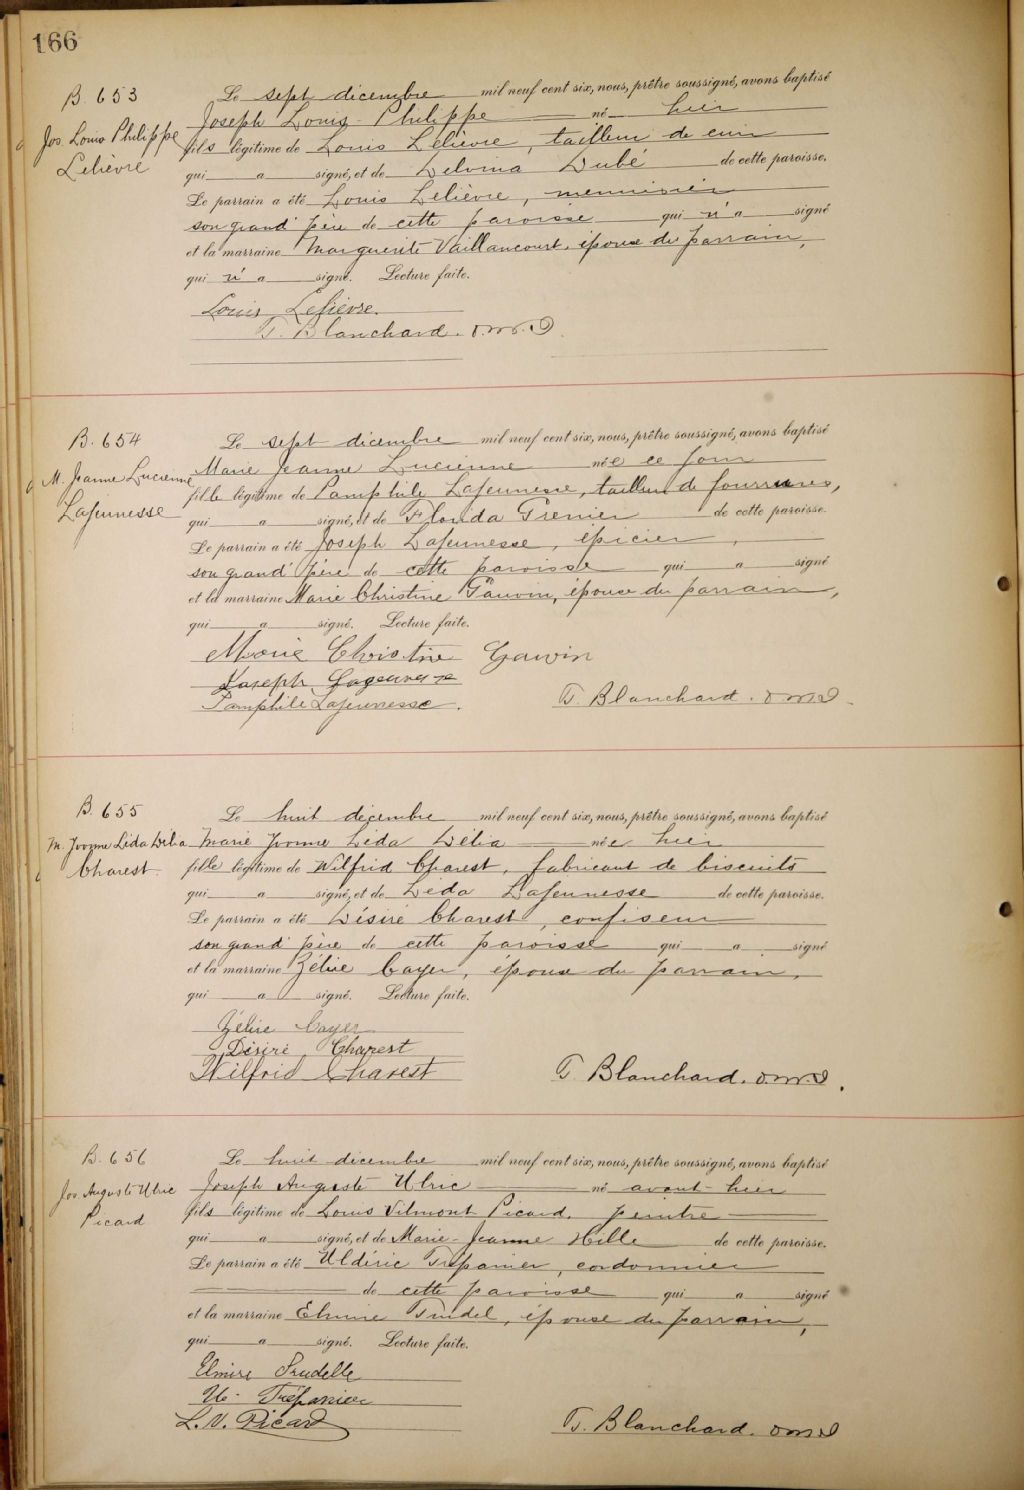 166
B. 653
Jos. Louis Philippe
Lelièvre
Le sept décembre mil neuf cent six, nous, prêtre soussigné, avons baptisé
Joseph Louis-Philippe né hier
fils légitime de Louis Lelièvre, tailleur de cuir
qui a signé, et de Delvina Dubé de cette paroisse.
Le parrain a été Louis Lelièvre, menuisier
son grand'père de cette paroisse qui n'a signé
et la marraine Marguerite Vaillancourt, épouse du parrain,
qui n'a signé. Lecture faite.
Louis Lelièvre.
T. Blanchard. o.m.i.
B. 654
M. Jeanne Lucienne
Lajeunesse
Le sept décembre mil neuf cent six, nous, prêtre soussigné, avons baptisé
Marie Jeanne Lucienne née ce jour
fille légitime de Pamphile Lajeunesse, tailleur de fourrures,
qui a signé, et de Florida Grenier de cette paroisse.
Le parrain a été Joseph Lajeunesse, épicier,
son grand'père de cette paroisse qui a signé
et la marraine Marie Christine Gauvin, épouse du parrain,
qui a signé. Lecture faite.
Marie Christine Gauvin
Joseph Lageunesse
Pamphile Lajeunesse.
T. Blanchard. o.m.i.
B. 655
M. Yvonne Léda Délia
Charest.
Le huit décembre mil neuf cent six, nous, prêtre soussigné, avons baptisé
Marie Yvonne Léda Délia née hier
fille légitime de Wilfrid Charest, fabricant de biscuits
qui a signé, et de Léda Lajeunesse de cette paroisse.
Le parrain a été Désiré Charest, confiseur
son grand'père de cette paroisse qui a signé
et la marraine Zélire Cayer, épouse du parrain,
qui a signé. Lecture faite.
Zélire Cayer
Désiré Charest
Wilfrid Charest
T. Blanchard. o.m.i.
B. 656
Jos. Auguste Ulric
Picard
Le huit décembre mil neuf cent six, nous, prêtre soussigné, avons baptisé
Joseph Auguste Ulric né avant-hier
fils légitime de Louis Vilmont Picard, peintre
qui a signé, et de Marie-Jeanne Hille de cette paroisse.
Le parrain a été Uldéric Trépanier, cordonnier
de cette paroisse qui a signé
et la marraine Elmire Trudel, épouse du parrain,
qui a signé. Lecture faite.
Elmire Trudelle
Trépanier
L. V. Picard
T. Blanchard. o.m.i.